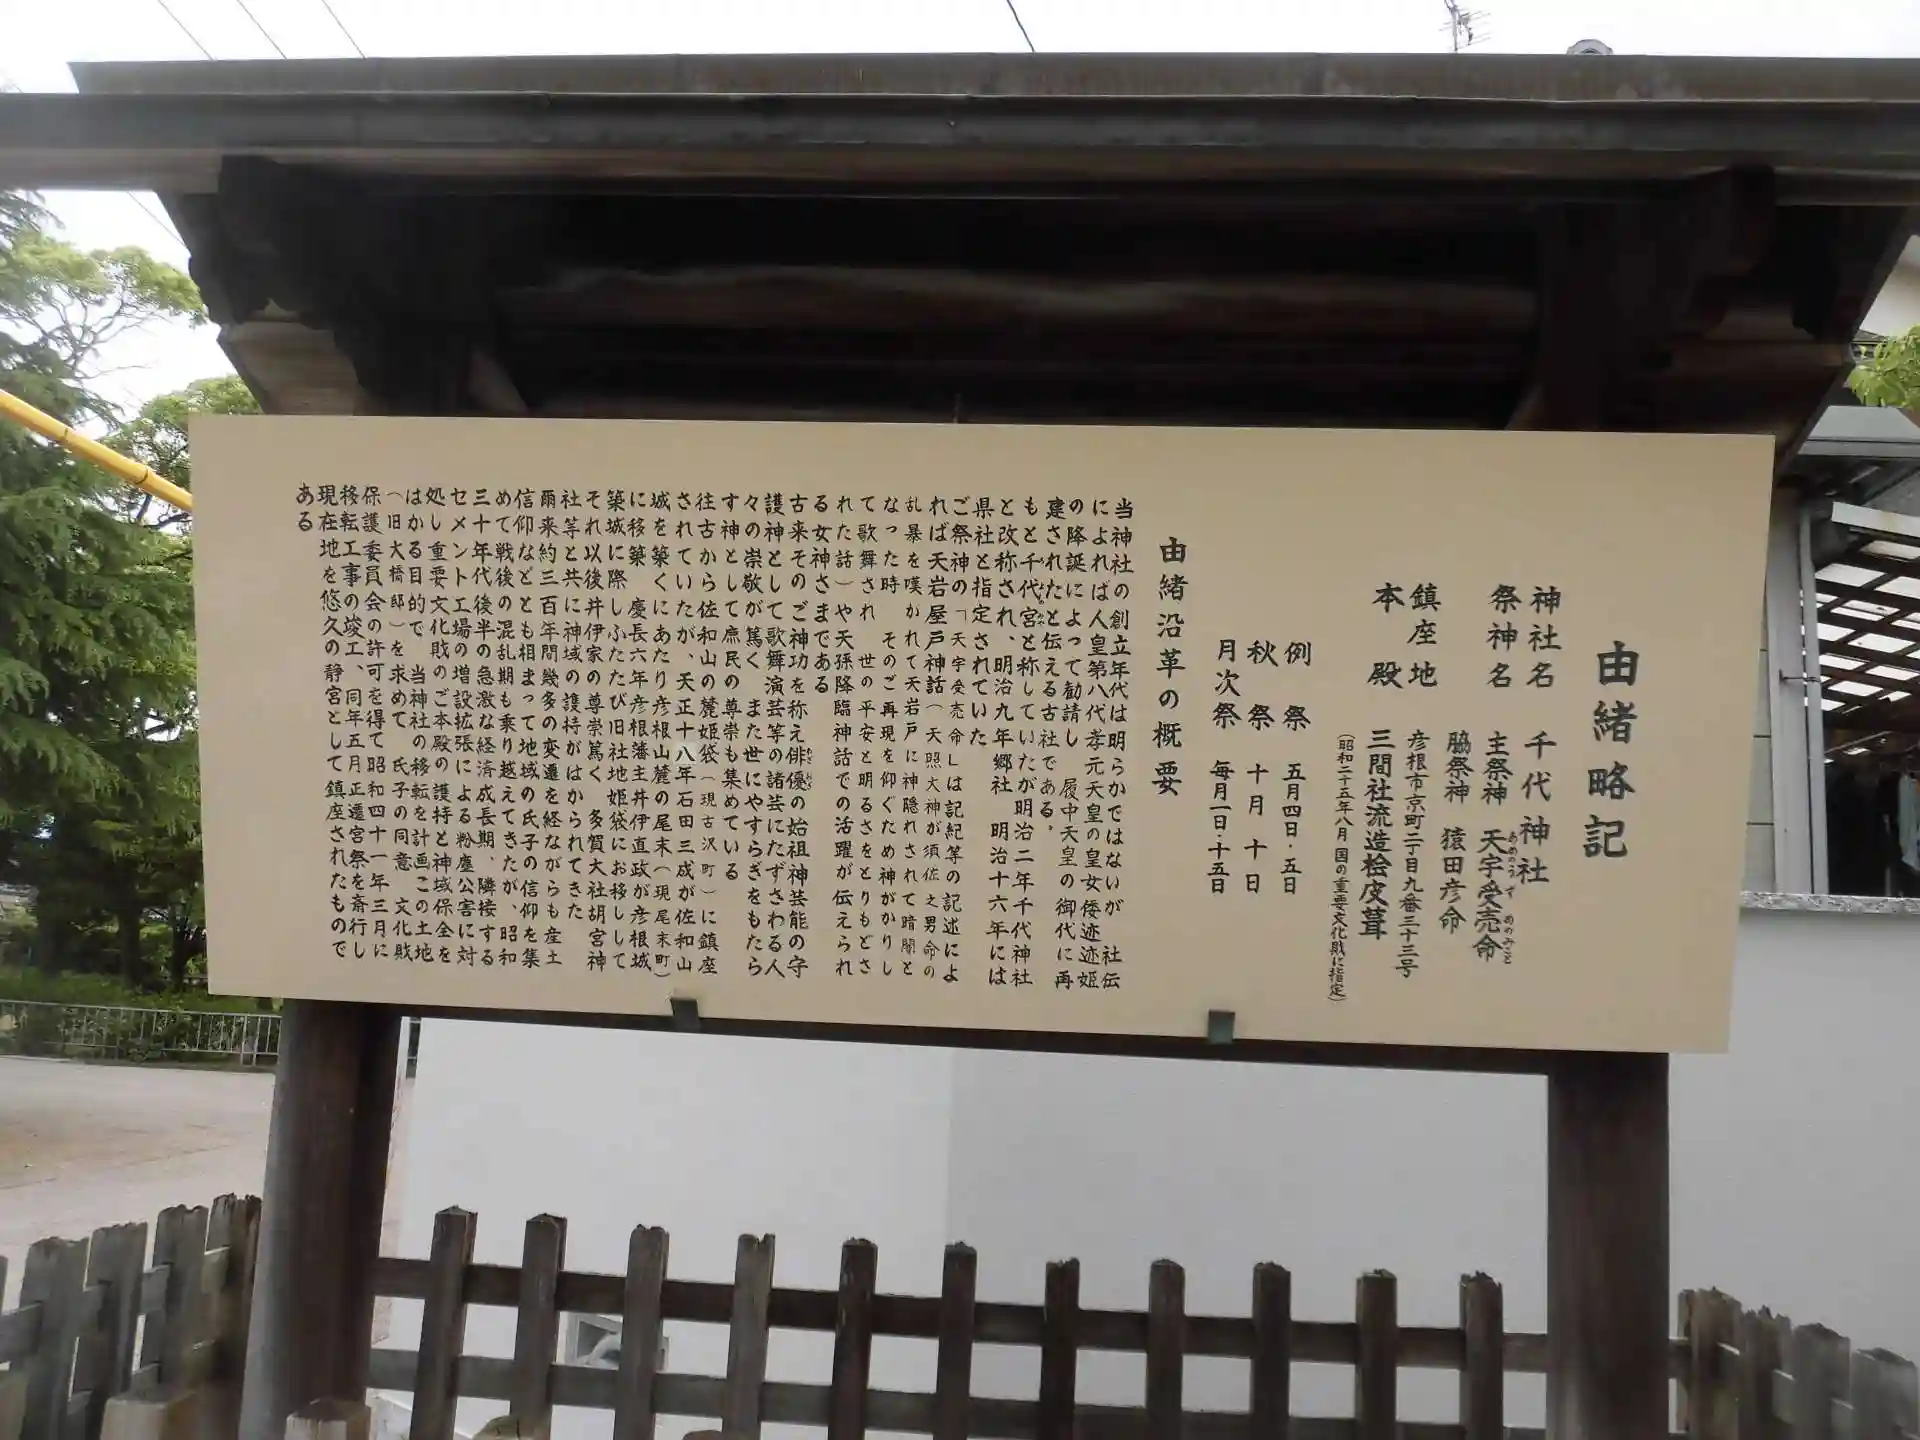 由緒略記
神社名 千代神社
祭神名 主祭神 天宇受売命
あめのうずめのみこと
脇祭神 猿田彦命
鎮座地 彦根市京町二丁目九番三十三号
本殿 三間社流造桧皮葺
(昭和二十五年八月国の重要文化財に指定)
例祭 五月四日・五日
秋祭 十月十日
月次祭 毎月一日・十五日
由緒沿革の概要
当神社の創立年代は明らかではないが 社伝
によれば人皇第八代孝元天皇の皇女倭迹迹姫
の降誕によって勧請し 履中天皇の御代に再
建されたと伝える古社である。
もと千代宮と称していたが明治二年千代神社
と改称され、明治九年郷社 明治十六年には
県社と指定されていた
ご祭神の「天宇受売命」は記紀等の記述によ
れば天岩屋戸神話(天照大神が須佐之男命の
乱暴を嘆かれて天岩戸に神隠れされて暗闇と
なった時 そのご再現を仰ぐため神がかりし
て歌舞され 世の平安と明るさをとりもどさ
れた話)や天孫降臨神話での活躍が伝えられ
る女神さまである
古来そのご神功を称え俳優の始祖神芸能の守
護神として歌舞演芸等の諸芸にたずさわる人
々の崇敬が篤く また世にやすらぎをもたら
す神として庶民の尊崇も集めている
往古から佐和山の麓姫袋(現古沢町)に鎮座
されていたが、天正十八年石田三成が佐和山
城を築くにあたり彦根山麓の尾末(現尾末町)
に移築 慶長六年彦根藩主井伊直政が彦根城
築城に際しふたたび旧社地姫袋にお移しして
それ以後井伊家の尊崇篤く 多賀大社胡宮神
社等と共に神域の護持がはかられてきた
爾来約三百年間幾多の変遷を経ながらも産土
信仰などとも相まって地域の氏子の信仰を集
めて戦後の混乱期も乗り越えてきたが、昭和
三十年代後半の急激な経済成長期、隣接する
セメント工場の増設拡張による粉塵公害に対
処し重要文化財のご本殿の護持と神域保全を
はかる目的で 当神社の移転を計画この土地
(旧大橋邸)を求めて 氏子の同意 文化財
保護委員会の許可を得て昭和四十一年三月に
移転工事の竣工、同年五月正遷宮祭を斎行し
現在地を悠久の静宮として鎮座されたもので
ある